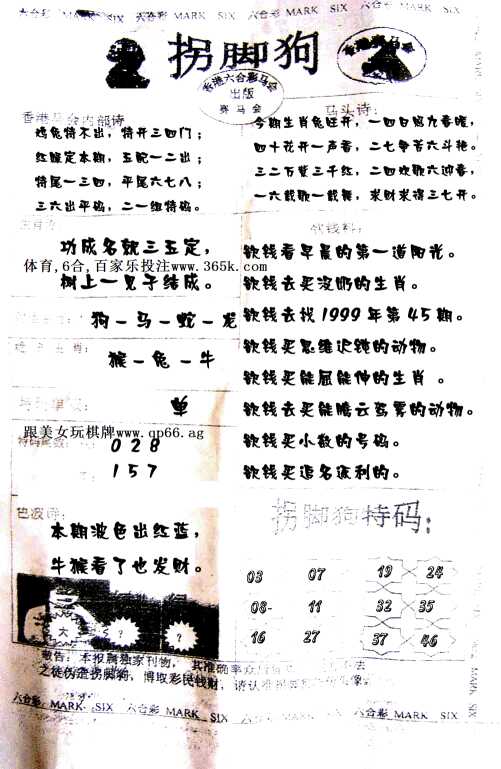 六合彩 MARK SIX 六合彩 MARK SIX 六合彩 MARK SIX 六合彩 MARK SIX
拐脚狗
香港六合彩马会
出版
赛马会
香港马会内部诗
鸡兔特不出，特开三四门；
红腹定本期，五配一二出；
特尾一三四，平尾六七八；
三六出平码，二一组特码。
马头诗：
今期生肖兔旺开，一四日照九春暖，
四十花开一声春，二七争芳六斗艳。
三二万紫三千红，二四欢歌六迎春，
一六载歌一载舞，求财求得三七开。
功成名就三五定，
树上一见子结成。
体育,6合,百家乐投注www.365k.com
狗－马－蛇－龙
猴－兔－牛
单
跟美女玩棋牌www.qp66.ag
028
157
欲钱料：
欲钱看早晨的第一道阳光。
欲钱去买没奶的生肖。
欲钱去找1999年第45期。
欲钱买思维迟钝的动物。
欲钱买能屈能伸的生肖。
欲钱去买能腾云驾雾的动物。
欲钱买小数的号码。
欲钱买追名逐利的。
色波诗：
本期波色出红蓝，
牛猴看了也发财。
大 ? ?
拐脚狗特码：
03 07 19 24
08 11 32 35
16 27 37 46
敬告：本报属独家刊物，其准确率众
之徒伪造拐脚狗，博取彩民钱财，请认准
六合彩 MARK SIX 六合彩 MARK SIX 六合彩 MARK SIX 六合彩 MARK SIX